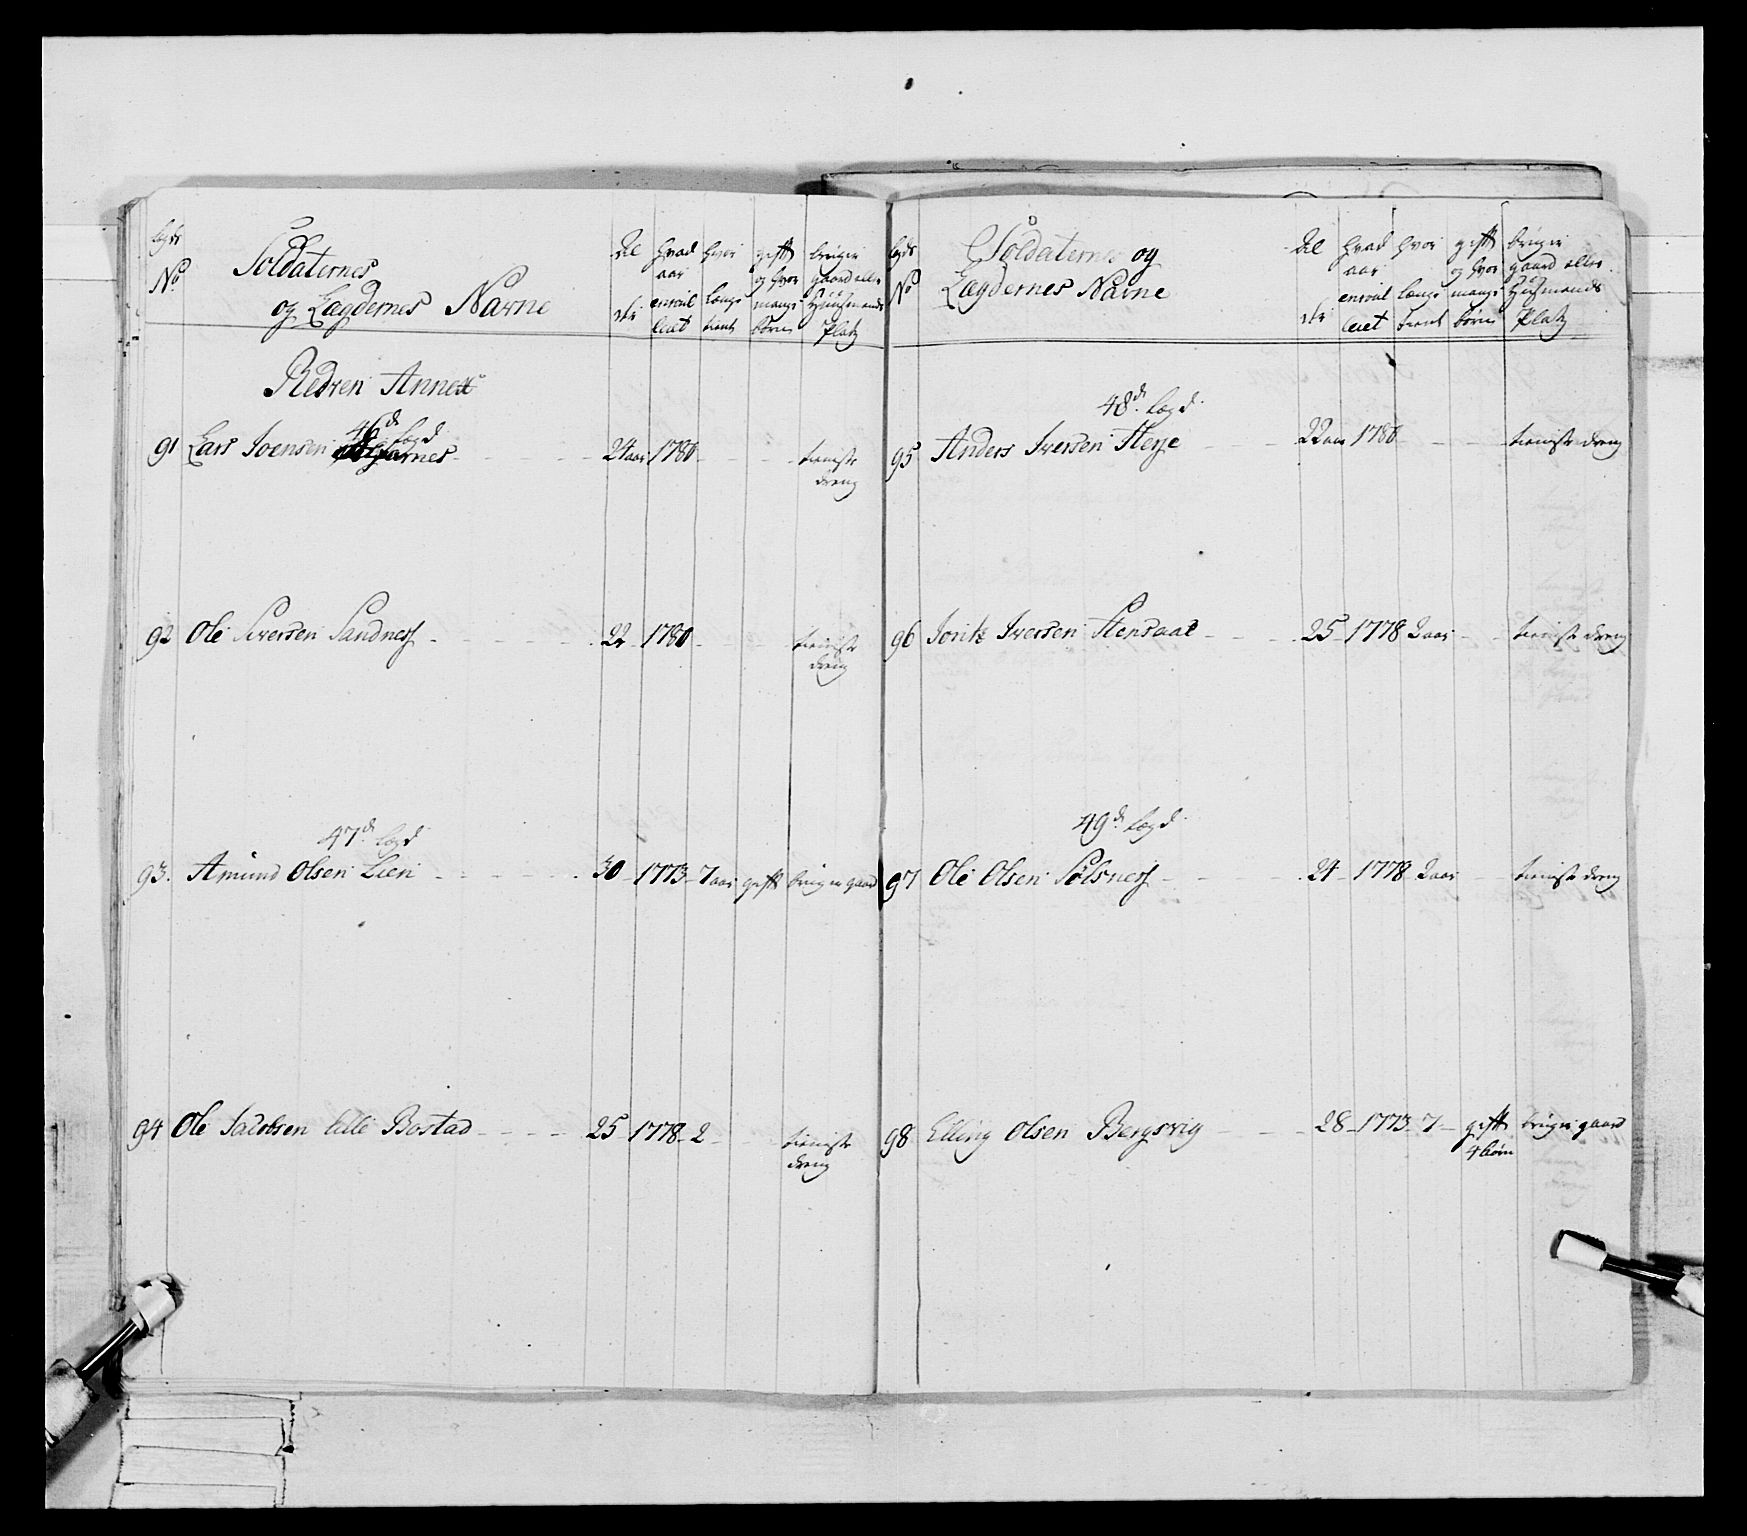 Lægds No Soldaternes og Lægdernes Navne Al der hvad aar enroul leret hvor længe tient gifft og hvor mange børn bruger gaard eller Huusmands Platz
Redven Annex
46de Lægd
91 Lars Joensen 24 aar 1780 tieniste dreng
92 Ole Iversen Sandness 22 1780 tieniste dreng
47de Lægd
93. Amund Olsen Lien 30 1773 7 aar gifft bruger gaard
94 Ole Jacobsen Lille Bostad 25 1778 2 tieniste dreng
Lægds No Soldaternes og Lægdernes Navne Al der hvad aar enroul leret hvor længe tient gifft og hvor mange børn bruger gaard eller Huusmands Platz
48de Lægd
95 Anders Iversen Herje 22 aar 1780 tieniste dreng
96 Iversen 25 1778 2 aar tieniste dreng
49de Lægd
97 Ole Olsen Sølsness 24 1778 2 aar tieniste dreng
98 Elling Olsen Bergsvig 28 1773 7 gifft 4 børn bruger gaard